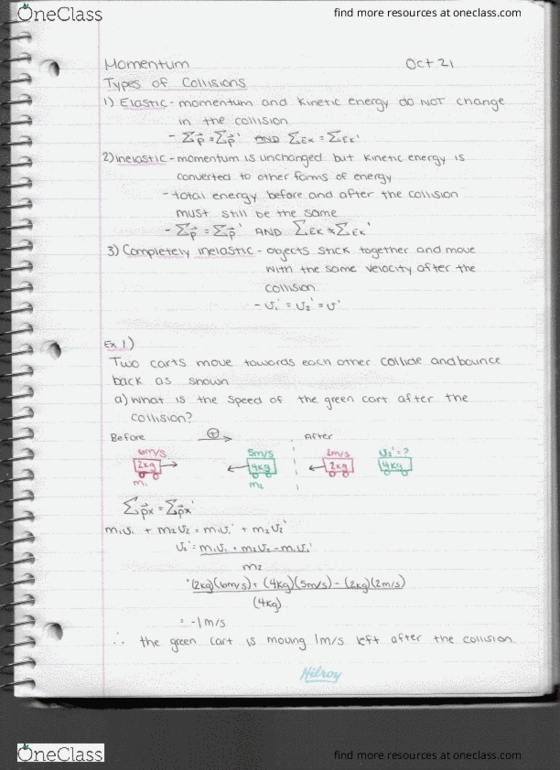 OneClass find more resources at oneclass.com
Momentum Oct 21
Types of Collisions
1) Elastic - momentum and kinetic energy do NOT change
in the collision
- Σp⃗ = Σp⃗' AND ΣEk = ΣEk'
2) Inelastic - momentum is unchanged but kinetic energy is
converted to other forms of energy
- total energy before and after the collision
must still be the same
- Σp⃗ = Σp⃗' AND ΣEk ≠ ΣEk'
3) Completely inelastic - objects stick together and move
with the same velocity after the
collision
- v₁' = v₂' = v'
Ex 1)
Two carts move towards each other collide and bounce
back as shown
a) What is the speed of the green cart after the
collision?
Before + After
6m/s 5m/s 2m/s v₂' = ?
2kg 4kg 2kg 4kg
m₁ m₂
Σp⃗x = Σp⃗x'
m₁v₁ + m₂v₂ = m₁v₁' + m₂v₂'
v₂' = m₁v₁ + m₂v₂ - m₁v₁'
m₂
= (2kg)(6m/s) + (4kg)(5m/s) - (2kg)(2m/s)
(4kg)
= -1m/s
∴ the green cart is moving 1m/s left after the collision.
Hilroy
OneClass find more resources at oneclass.com